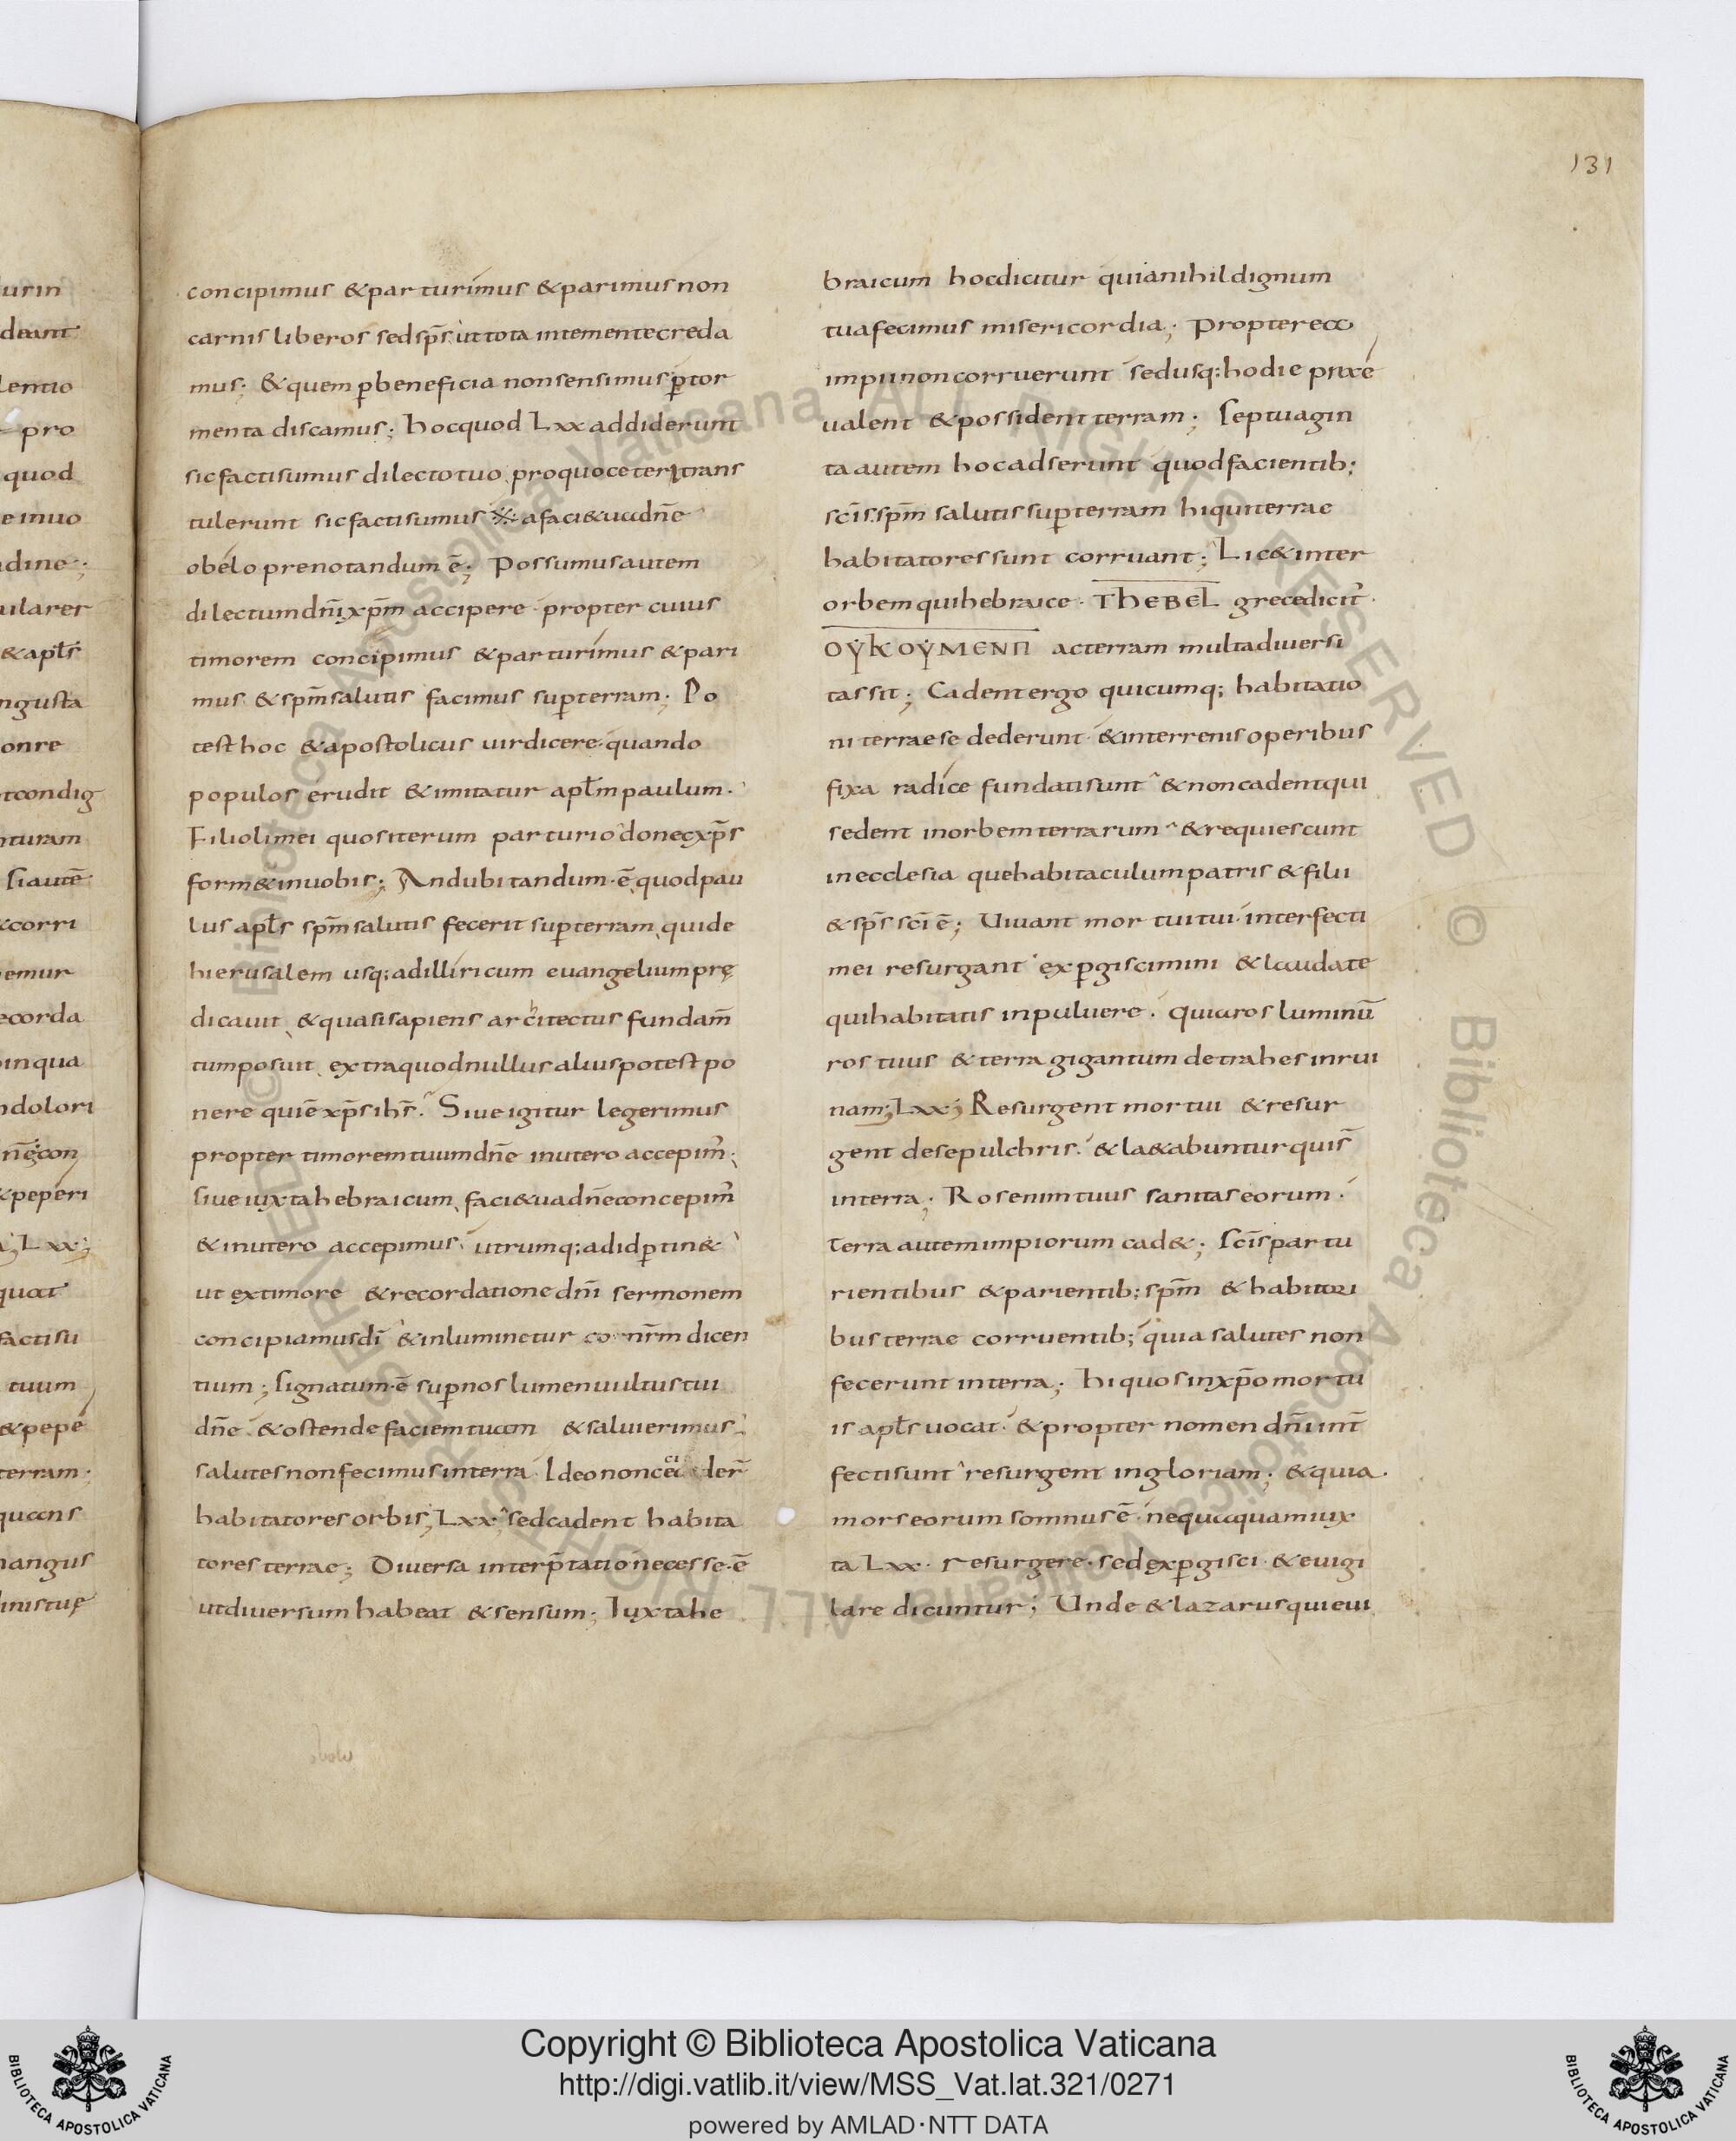 131
concipimus & parturimus & parimus non
carnis liberos sed sp̄s. ut tota in te mente creda
mus; & quem ꝑ beneficia non sensimus ꝑ tor
menta discamus; hoc quod Lxx addiderunt
sic facti sumus dilecto tuo, pro quo ceteri trans
tulerunt sic facti sumus ※ a faci&ua dn̄e
obelo prenotandum ē; Possumus autem
dilectum dn̄i xp̄m accipere propter cuius
timorem concipimus & parturimus & pari
mus & sp̄m salutis facimus suꝑ terram; Po
test hoc & apostolicus uir dicere quando
populos erudit & imitatur apl̄m paulum.
Filioli mei quos iterum parturio donec xp̄s
form& in uobis; An dubitandum ē quod pau
lus apl̄s sp̄m salutis fecerit suꝑ terram, qui de
hierusalem usq; ad illiricum euangelium prę
dicauit, & quasi sapiens architectus fundam̄
tum posuit, extra quod nullus alius potest po
nere qui ē xp̄s ih̄s. Siue igitur legerimus
propter timorem tuum dn̄e in utero accepim̄;
siue iuxta hebraicum, faci&ua dn̄e concepim̄
& in utero accepimus, utrumq; ad id ꝑtin&
ut ex timore & recordatione dn̄i sermonem
concipiamus dī & inluminetur cor nr̄m dicen
tium; signatum ē suꝑ nos lumen uultus tui
dn̄e & ostende faciem tuam & salui erimus;
salutes non fecimus in terra. Ideo non ceciderт̄
habitatores orbis; Lxx sed cadent habita
tores terrae; Diuersa interp̄tatio necesse ē
ut diuersum habeat & sensum; Iuxta he
braicum hoc dicitur quia nihil dignum
tua fecimus misericordia; Propterea
impii non corruerunt sed usq; hodie prae
ualent & possident terram; Septuagin
ta autem hoc adserunt quod facientib;
sc̄is sp̄m salutis suꝑ terram hi qui terrae
habitatores sunt corruant; Lic& inter
orbem qui hebraice THEBEL grece dicit̄
ΟΥΚΟΥΜΕΝΠ ac terram multa diuersi
tas sit; Cadent ergo quicumq; habitatio
ni terrae se dederunt & in terrenis operibus
fixa radice fundati sunt & non cadent qui
sedent in orbem terrarum & requiescunt
in ecclesia que habitaculum patris & filii
& sp̄s sc̄i ē; Uiuant mortui tui interfecti
mei resurgant exꝑgiscimini & laudate
qui habitatis in puluere. quia ros luminū
ros tuus & terra gigantum detrahes in rui
nam; Lxx; Resurgent mortui & resur
gent de sepulchris. & la&abuntur qui s̄
in terra; Ros enim tuus sanitas eorum.
Terra autem impiorum cad&; sc̄is partu
rientibus & parientib; sp̄m & habitori
bus terrae corruentib; quia salutes non
fecerunt in terra; hi quos in xp̄o mortu
is apl̄s uocat & propter nomen dn̄i int̄
fecti sunt resurgent in gloriam; & quia
mors eorum somnus ē nequaquam iux
ta Lxx resurgere sed exꝑgisci & euigi
lare dicuntur; Unde & lazarus qui eui
Copyright © Biblioteca Apostolica Vaticana
http://digi.vatlib.it/view/MSS_Vat.lat.321/0271
powered by AMLAD·NTT DATA